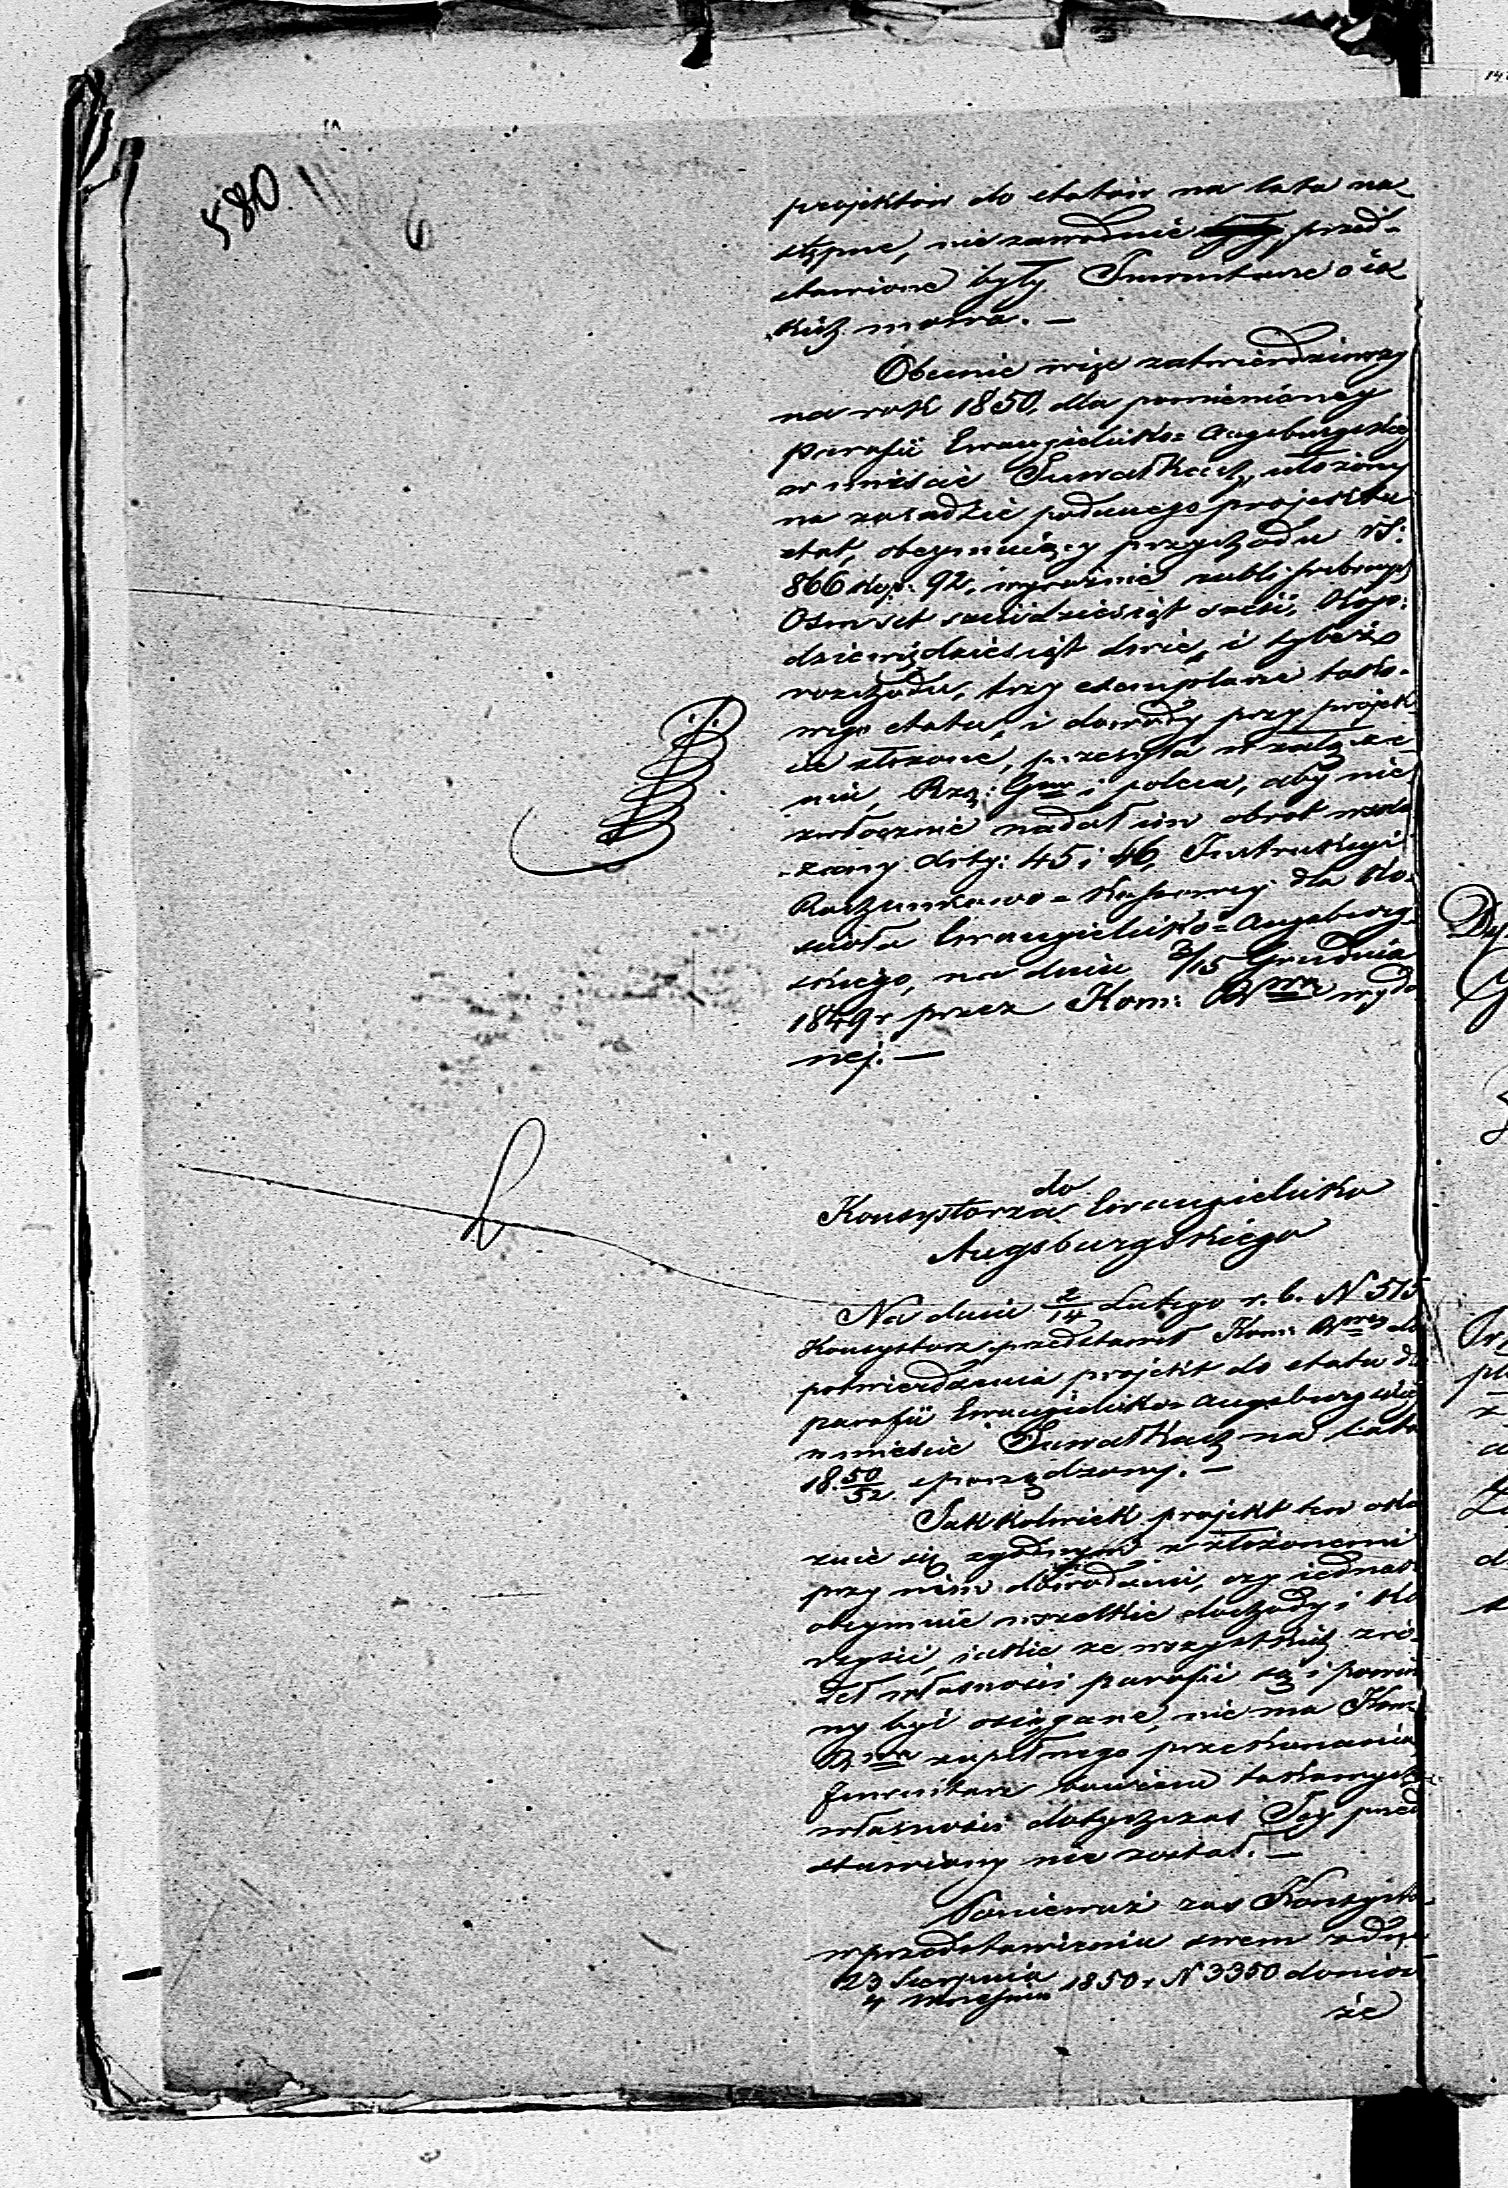 580
6
projektów do etatów na lata na
stępne, niezawodnie przed-
stawione były Inwentarze o ia
kich mowa. —
Obecnie więc zatwierdziwszy
na rok 1850, dla pomienionéy
parafii Ewangielicko=Augsburgskiéy
w mieście Suwałkach, ułożony
na zasadzie podanego projektu
etat, obeymuiący przychodu rs:
866 kop: 92, wyraźnie rubli srebrnych
Osmset sześćdziesiąt sześć, kop:
dziewięćdziesiąt dwie, i tyleż
rozchodu, trzy exemplarze tako-
wego etatu, i dowody przy projek
cie złożone, przesyła w załącze-
niu, Rzą: Gu i poleca, aby nie
zwłocznie nadał im obrot wska
zany Arty: 45 i 46, Instrukcyi
Rachunkowo=Kassowey dla Ko-
ścioła Ewangielicko=Augsburg-
skiego, na dniu 3/15 Grudnia
1849 r przez Kom: Rwą wyda
nej. —
do
Konsystorza Ewangielicko
Augsburgskiego
Na dniu 2/14 Lutego r. b. N 515
Konsystorz przedstawił Kom: Rwéy do
potwierdzenia projekt do etatu dla
parafii Ewangielicko=Augsburgskiéy
w mieście Suwałkach na lata
18 50/52 sporządzony. —
Jakkolwiek projekt ten oka
zuie się zgodnym z złożonemi
przy nim dowodami, czy iednak
obeymuie wszelkie dochody i ko
rzyści, iakie ze wszystkich źró-
deł własności parafii są i powin
ny być osiągane, nie ma Kom:
Rwa zupełnego przekonania
Inwentarz bowiem takowych
własności dotychczas Jey przed
stawiony nie został. —
Ponieważ zaś Konsystorz
w przedstawieniu swem z dnia
23 Sierpnia/4 Września 1850 r N 3350 doniosł
że